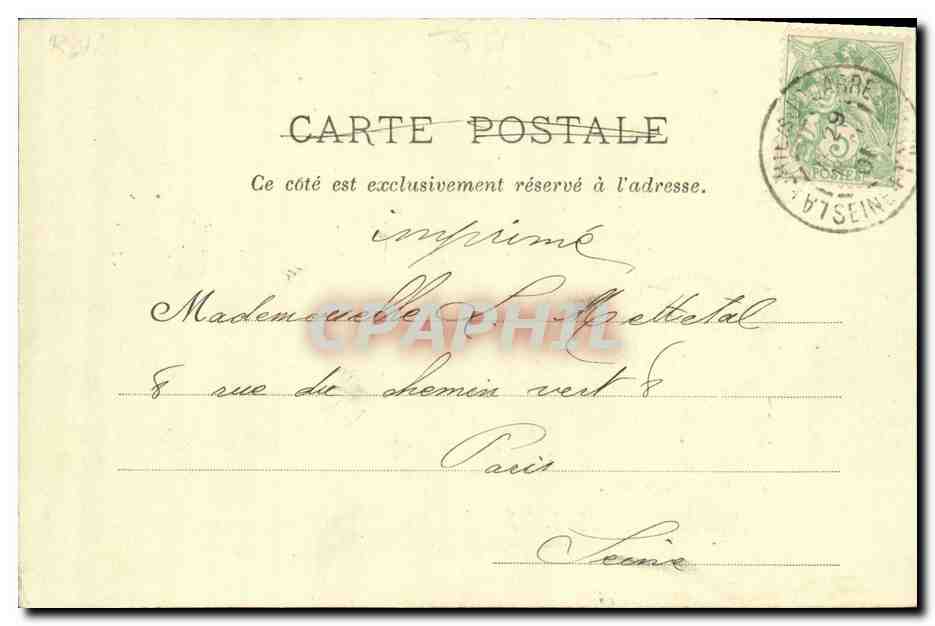 CARTE POSTALE
Ce côté est exclusivement réservé à l'adresse.
imprimé
Mademoiselle L. Mettetal
8 rue du chemin vert 8
Paris
Seine
CPAPHIL
5
POSTES
29
01
SEINE